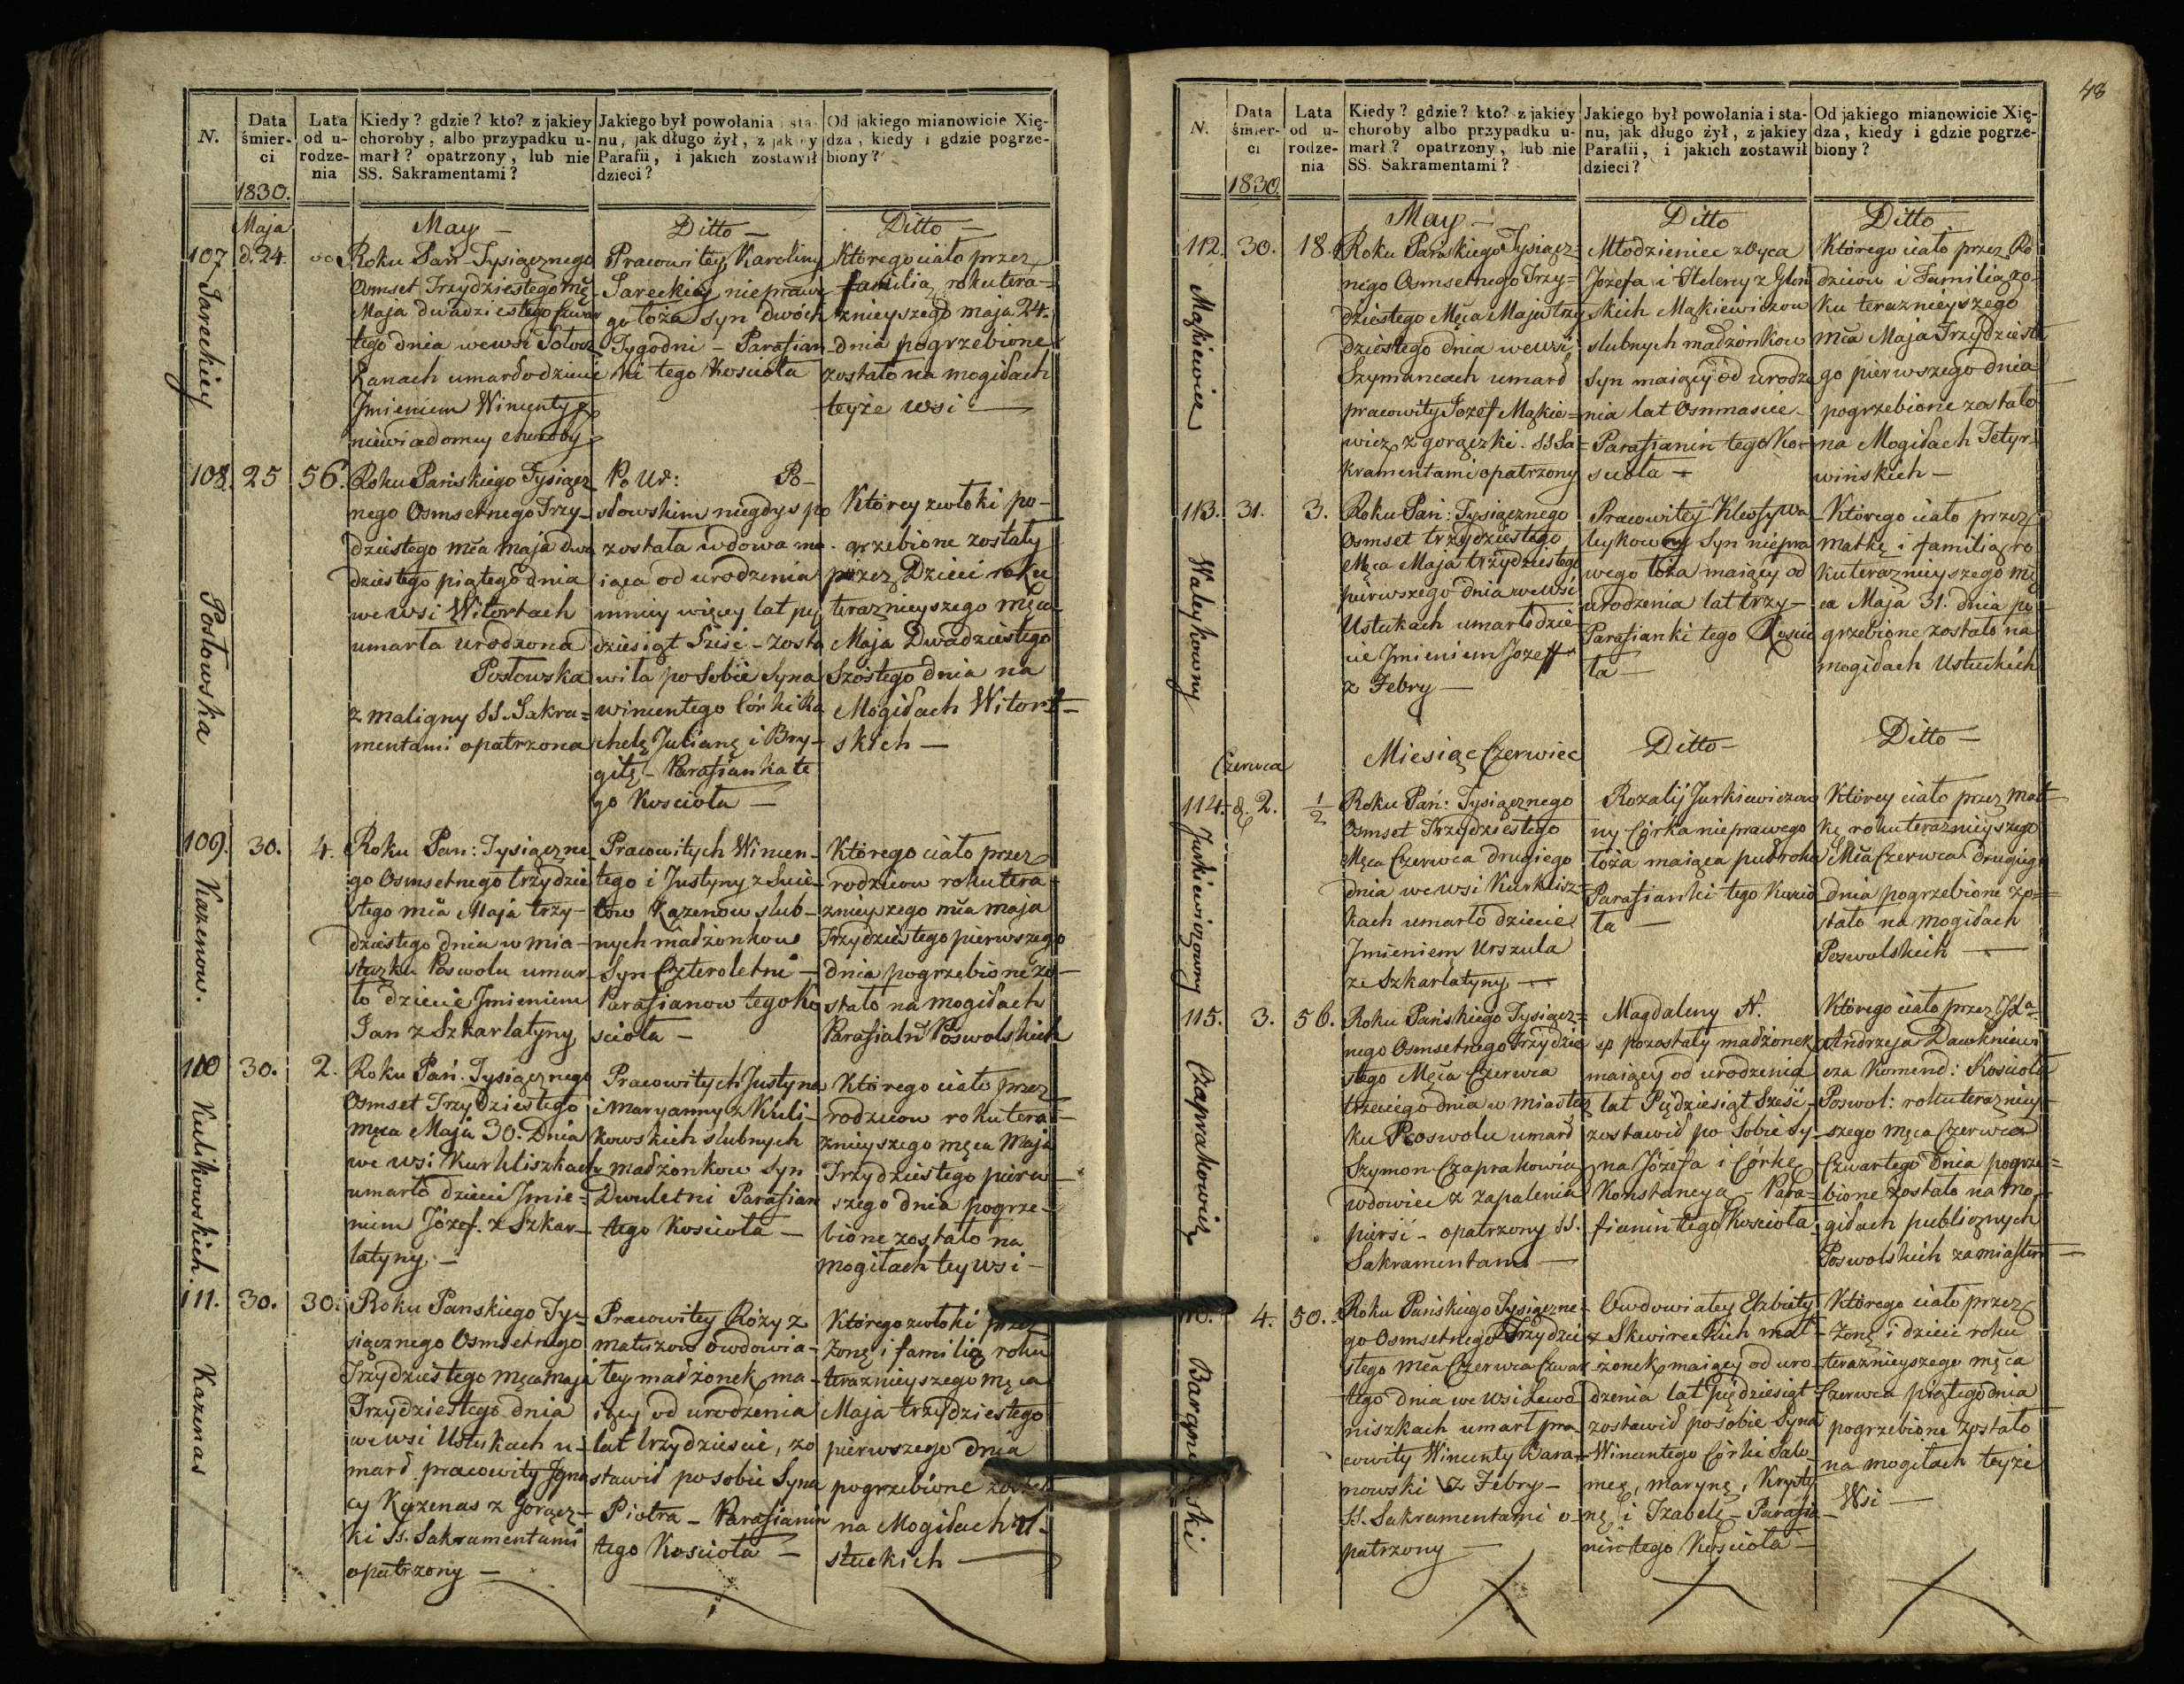 N.
Data śmier-
ci
1830.
Lata
od u-
rodze-
nia
Kiedy? gdzie? kto? z jakiey
choroby, albo przypadku u-
marł? opatrzony, lub nie
SS. Sakramentami?
Jakiego był powołania i sta-
nu, jak długo żył, z jakiey
Parafii, i jakich zostawił
dzieci?
Od jakiego mianowicie Xię-
dza, kiedy i gdzie pogrze-
biony?
Maja
May —
Ditto —
Ditto —
107
d. 24.
Jareckiey
Roku Pań Tysiącznego
Osmset Trzydziestego Mę
Maja dwadziestego Czwar
tego dnia wewsi
Łanach umarło dziecie
Jmieniem Wincenty z
niewiadomey choroby
Pracowitey Karoliny
Jareckiey nieprawe
go łoża syn dwóch
Tygodni – Parafian
ki tego Kościoła
Którego ciało przez
familią roku tera-
znieyszego maja 24.
dnia pogrzebione
zostało na mogiłach
teyże wsi —
108.
25
56.
Posłowska
Roku Pańskiego Tysiącz
nego Osmsetnego Trzy-
dziestego mca maja dwa
dziestego piątego dnia
we wsi Witortach
umarła Urodzona
Posłowska
z maligny SS. Sakra=
mentami opatrzona
Po Ur: Po-
słowskim niegdys po
została wdowa ma-
iąca od urodzenia
mniey więcey lat pię
dziesiąt Sześć – zosta
wiła po Sobie Syna
wincentego Córki Ra
chelę Julianę i Bry-
gitę – Parafianka te
go Kościoła —
Którey zwłoki po-
grzebione zostały
przez Dzieci roku
teraznieyszego męca
Maja Dwadziestego
Szóstego dnia na
Mogiłach Witort-
skich —
109.
30.
4.
Kazenow.
Roku Pan: Tysiączne
go Osmsetnego trzydzie
stego mca Maja trzy-
dziestego dnia w mia-
steczku Poswolu umar
ło dziecie Jmieniem
Jan z Szkarlatyny
Pracowitych Wincen-
tego i Justyny z Swie-
tow Kazenow slub-
nych małżonkow
Syn Czteroletni —
Parafianow tego Ko
scioła —
Którego ciało przez
rodzicow roku tera-
znieyszego mca maja
Trzydziestego pierwszego
dnia pogrzebione zo-
stało na mogiłach
Parafialn Poswolskich
110
30.
2.
Kulikowskich.
Roku Pań. Tysiącznego
Osmset Trzydziestego
męca Maja 30. Dnia
we wsi Kurkliszkach
umarło dziecie Jmie-
niem Józef. z Szkar-
latyny —
Pracowitych Justyna
i Maryanny z Kuli-
kowskich slubnych
małżonkow syn
Dwuletni Parafian
tego Kościoła —
Którego ciało przez
rodzicow roku tera
znieyszego męca Maja
Trzydziestego pierw-
szego dnia pogrze-
bione zostało na
mogiłach tey wsi —
111.
30.
30.
Kazenas
Roku Panskiego Ty=
siącznego Osmsetnego
Trzydziestego męca maja
Trzydziestego dnia
we wsi Ustukach u-
marł pracowity Jgna
cy Kazenas z Gorącz-
ki SS. Sakramentami
opatrzony —
Pracowitey Róży z
matuzow owdowia-
łey małżonek ma-
iący od urodzenia
lat trzydzieście, zo
stawił po sobie Syna
Piotra – Parafianin
tego Kościoła —
Którego zwłoki przez
Żonę i familią roku
teraznieyszego męca
Maja trzydziestego
pierwszego dnia
pogrzebione
na Mogiłach U-
stuckich —
48
N.
Data
śmier-
ci
1830.
Lata
od u-
rodze-
nia
Kiedy? gdzie? kto? z jakiey
choroby albo przypadku u-
marł? opatrzony, lub nie
SS. Sakramentami?
Jakiego był powołania i sta-
nu, jak długo żył, z jakiey
Parafii, i jakich zostawił
dzieci?
Od jakiego mianowicie Xię-
dza, kiedy i gdzie pogrze-
biony?
May —
Ditto
Ditto —
112.
30.
18.
Mąkiewicz
Roku Pańskiego Tysiącz-
nego Osmsetnego Trzy=
dziestego Męca Maja trzy
dziestego dnia wewsi
Szymancach umarł
pracowity Józef Mąkie=
wicz z gorączki. SS Sa-
kramentami opatrzony
Młodzieniec z Oyca
Józefa i Heleny z
skich Mąkiewiczow
slubnych małżonkow
Syn maiący od urodze
nia lat Osmnascie
Parafianin tego Ko-
scioła —
Którego ciało przez Ro
dzicow i Familią ro-
ku teraznieyszego
mca Maja Trzydzieste
go pierwszego dnia
pogrzebione zostało
na Mogiłach Tetyr-
wińskich —
113.
31.
3.
Waleykowny
Roku Pań: Tysiącznego
Osmset trzydziestego
Męca Maja trzydziestego
pierwszego dnia wewsi
Ustukach umarło dzie
cie Jmieniem Jozeff
z Febry —
Pracowitey Kleofy Wa
leykowny Syn niepra
wego łoża maiący od
urodzenia lat trzy —
Parafianki tego Koscio
ła —
Którego ciało przez
Matkę i familią ro
ku teraznieyszego mę
ca Maja 31. dnia po
grzebione zostało na
mogiłach Ustuckich
Czerwca
Miesiąc Czerwiec
Ditto —
Ditto —
114.
d. 2.
1/2
Jurkiewiczowny
Roku Pań: Tysiącznego
Osmset Trzydziestego
Męca Czerwca drugiego
dnia we wsi Kurklisz-
kach umarło dziecie
Jmieniem Urszula
ze Szkarlatyny —
Rozalij Jurkiewiczow
ny Córka nieprawego
łoża maiąca puł roku
Parafianki tego Koscio
ła —
Którey ciało przez Mat-
kę roku teraznieyszego
Mca Czerwca drugiego
dnia pogrzebione zo=
stało na mogiłach
Poswolskich —
115.
3.
56.
Czaprakowicz
Roku Pańskiego Tysiącz=
nego Osmsetnego Trzydzie
stego Męca Czerwca
trzeciego dnia w miastecz
ku Poswolu umarł
Szymon Czaprakowicz
wdowiec z zapalenia
piersi – opatrzony SS.
Sakramentami —
Magdaleny N.
sp pozostały małżonek
maiący od urodzenia
lat Pięćdziesiąt Sześć –
zostawił po Sobie Sy-
na Józefa i Córkę
Konstancya – Para-
fianin tego Kościoła
Którego ciało przez
Andrzeja Dawkniewi
cza Komend: Kościoła
Poswol: roku terazniey-
szego męca Czerwca
Czwartego Dnia pogrze=
bione zostało na mo-
giłach publicznych
Poswolskich za miastem —
4.
50.
Roku Pańskiego Tysiączne-
go Osmsetnego Trzydzie
stego mca Czerwca Czwar
tego dnia we Wsi Lewa
niszkach umarł pra-
cowity Wincenty Bara-
nowski z Febry —
SS. Sakramentami o-
patrzony —
Owdowiałey Elzbiety
z Skwireckich mał-
żonek maiący od uro-
dzenia lat pięćdziesiąt
zostawił po sobie Syna
Wincentego Córki Salo-
meę, marynę, Krysty
nę i Izabelę – Parafia-
nin tego Kościoła —
Którego ciało przez
Żonę i dzieci roku
teraznieyszego męca
Czerwca piątego dnia
pogrzebione zostało
na mogiłach teyże
Wsi —